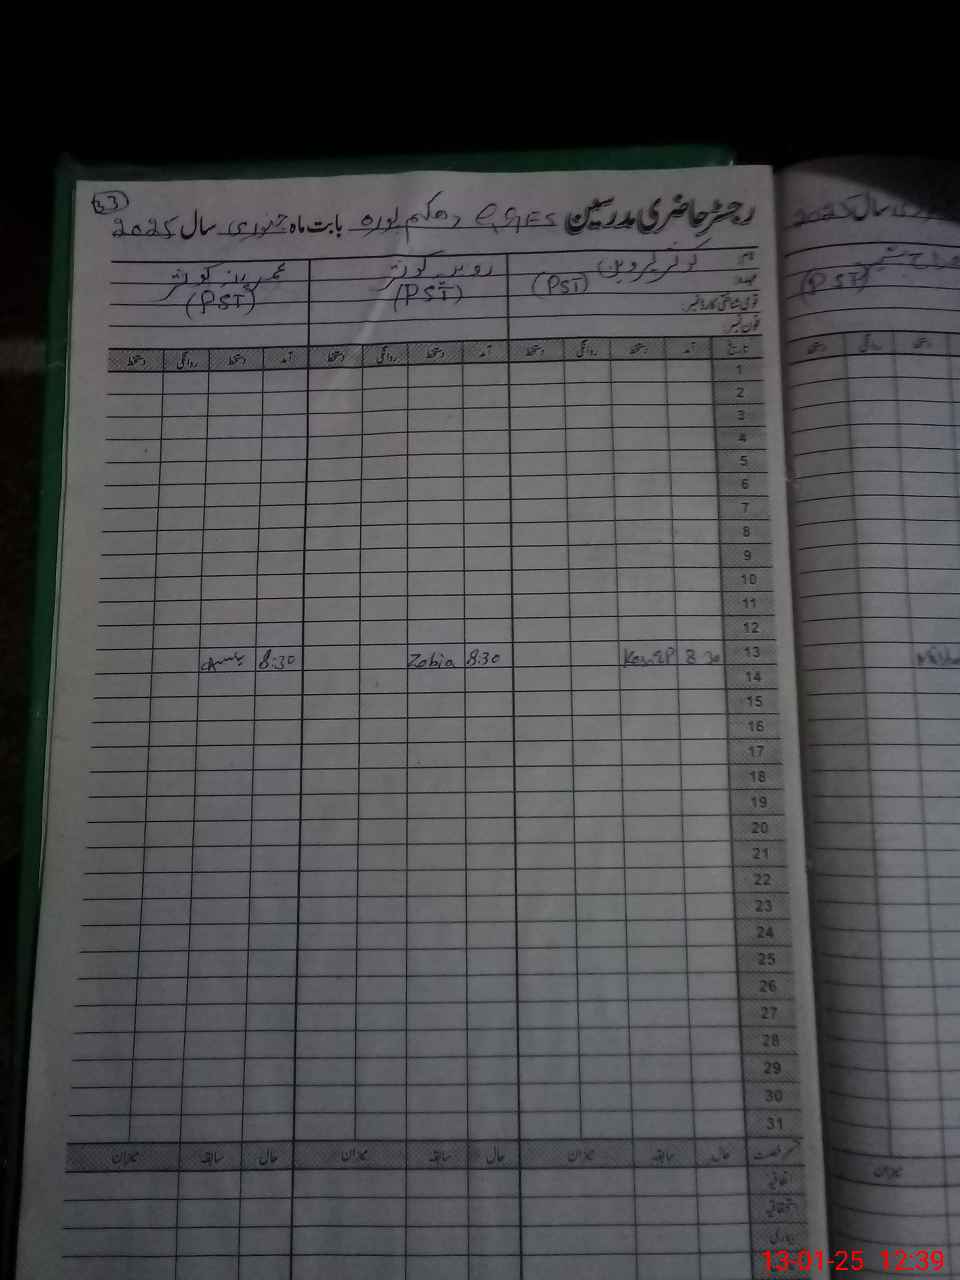 33
رجسٹر حاضری مدرسین GGES حکیم پورہ بابت ماہ جنوری سال 2025
نام کوثر پروین روبیہ کوثر
عہدہ (PST) (PST) (PST)
قومی شناختی کارڈ نمبر
فون نمبر
تاریخ آمد دستخط روانگی دستخط آمد دستخط روانگی دستخط آمد دستخط روانگی دستخط
1
2
3
4
5
6
7
8
9
10
11
12
13 8 30 8:30 Zobia 8:30
14
15
16
17
18
19
20
21
22
23
24
25
26
27
28
29
30
31
رخصت حال سابقہ میزان حال سابقہ میزان حال سابقہ میزان
اتفاقیہ
بیماری
سال 2025
(PST)
دستخط روانگی دستخط
میزان
13-01-25 12:39